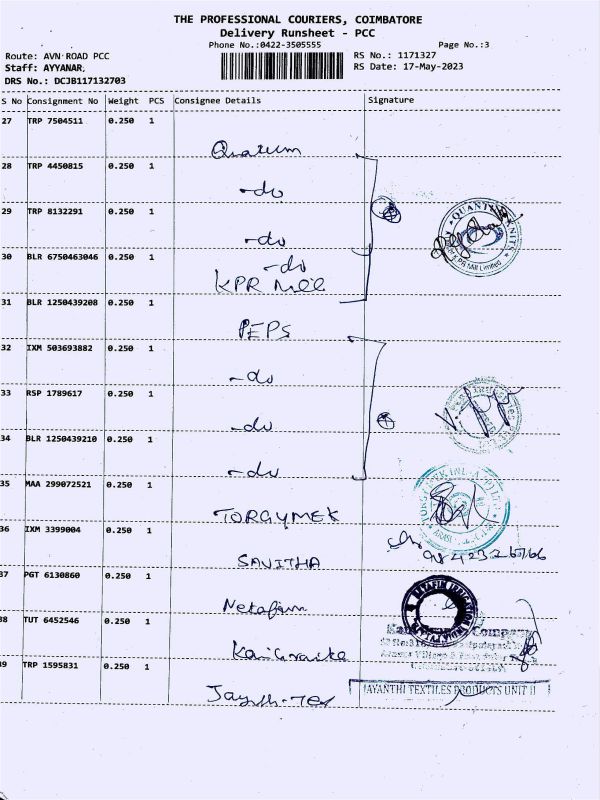 THE PROFESSIONAL COURIERS, COIMBATORE
Delivery Runsheet - PCC
Phone No.:0422-3505555 Page No.:3
Route: AVN ROAD PCC RS No.: 1171327
Staff: AYYANAR, RS Date: 17-May-2023
DRS No.: DCJB117132703
S No Consignment No Weight PCS Consignee Details Signature
27 TRP 7504511 0.250 1
Quantum
28 TRP 4450815 0.250 1
-do
29 TRP 8132291 0.250 1
-do
30 BLR 6750463046 0.250 1
-do
KPR Mill
31 BLR 1250439208 0.250 1
PEPS
32 IXM 503693882 0.250 1
-do
33 RSP 1789617 0.250 1
-do
34 BLR 1250439210 0.250 1
-do
35 MAA 299072521 0.250 1
TORGYMEK
36 IXM 3399004 0.250 1
SAVITHA
37 PGT 6130860 0.250 1
Netafim
38 TUT 6452546 0.250 1
39 TRP 1595831 0.250 1
JAYANTHI TEXTILES PRODUCTS UNIT II